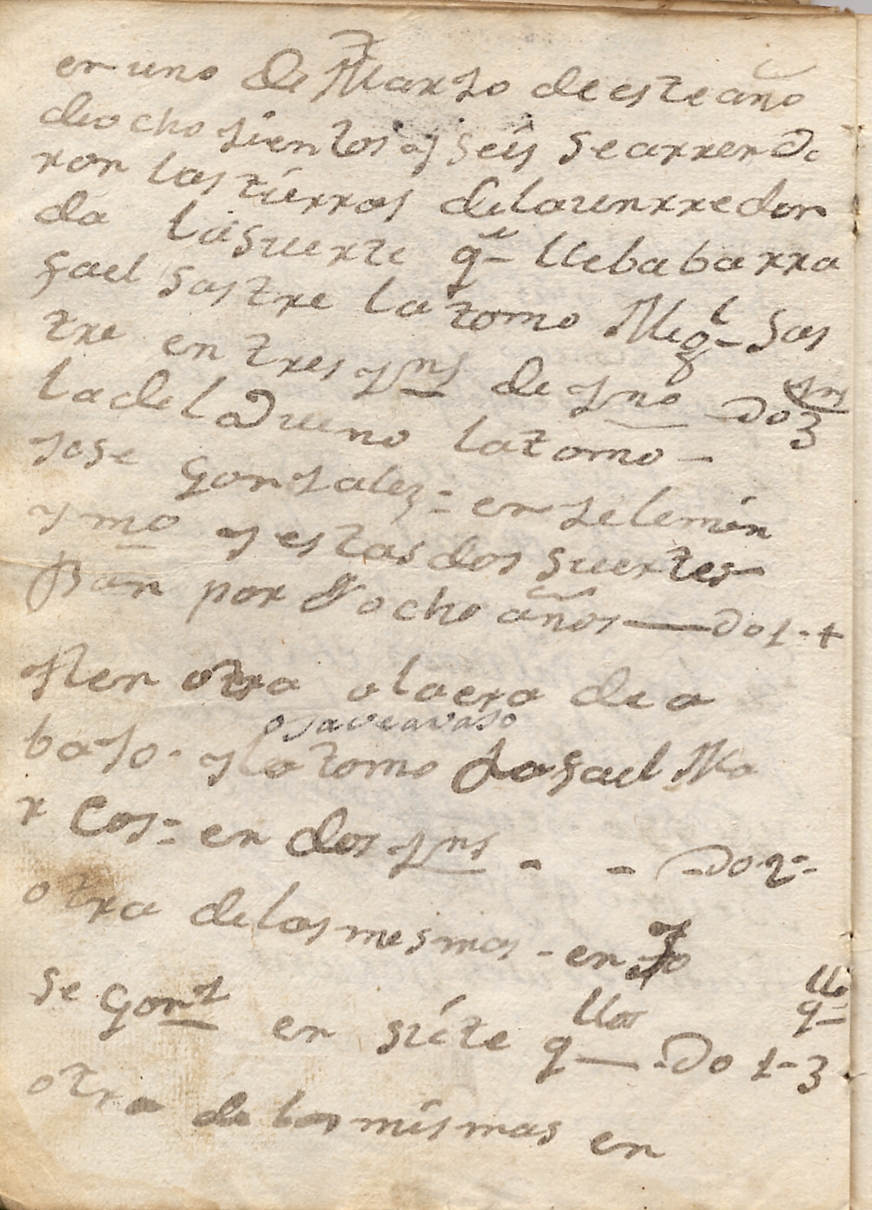 en uno de Marzo de este año
de ocho sientos y seis se arrenda
ron las tierras de la
da la suerte q.e llebaba rra
fael sastre la tomo Mig.l Sas
tre en tres fns de
la de la tomo –
Jose Gonzalez = en selemin
y m.o y estas dos suertes
Ban por ocho años — Do 1-+
Iten otra a la era de a
bajo - y la tomo Rafael Ma
r Cos = en dos fns - - Do 2=
otra de las mesmas - en Jo
se Gonz en siete q.llos - Do 1-3
otra de las mismas en